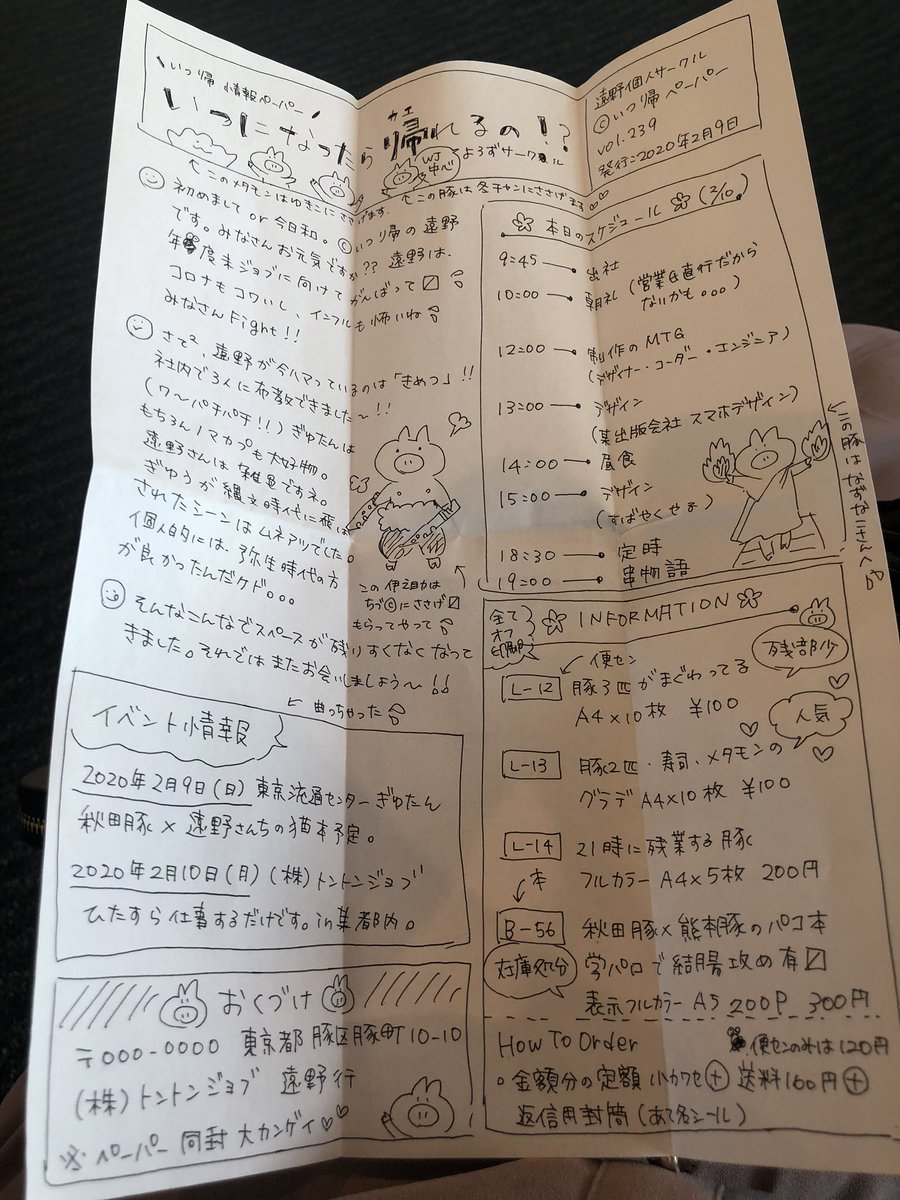 いつ帰 情報ペーパー
いつになったら帰れるの!?
カエ
WJ中心
よろずサークル
遠野個人サークル
©いつ帰 ペーパー
vol.239
発行:2020年2月9日
このメタモンはゆきこにささげます。
この豚は冬チャンにささげます
初めまして or 今日和。©いつ帰の遠野
です。みなさんお元気ですか?? 遠野は、
年度末ジョブに向けてがんばって〼
コロナもコワいし、インフルも怖いね
みなさんFight!!
さて²、遠野が今ハマっているのは「きめつ」!!
社内で3人に布教できました~!!
(ワ~パチパチ!!) ぎゆたんは
もちろんノマカプも大好物。
遠野さんは雑食ですネ。
ぎゆうが縄文時代に飛ば
されたシーンはムネアツでした。
個人的には、弥生時代の方
が良かったんだケド。。。
この伊之助は
ちづ©にささげ〼
もらってやって
そんなこんなでスペースが残りすくなくなって
きました。それではまたお会いしましょう~!!
曲っちゃった
イベント情報
2020年2月9日(日) 東京流通センター ぎゆたん
秋田豚×遠野さんちの猫本予定。
2020年2月10日(月) (株)トントンジョブ
ひたすら仕事するだけです。in某都内。
おくづけ
〒000-0000 東京都豚区豚町10-10
(株)トントンジョブ 遠野行
※ペーパー同封大カンゲイ
本日のスケジュール (2/10)
9:45 出社
10:00 朝礼 (営業日直行だから
ないかも。。。)
12:00 制作のMTG
(デザイナー・コーダー・エンジニア)
13:00 デザイン
(某出版会社 スマホデザイン)
14:00 昼食
15:00 デザイン
(すばやくせよ)
18:30 定時
19:00 串物語
この豚はなずなにさんへ
全てオフ印刷
INFORMATION
便セン
残部少
L-12 豚3匹がまぐわってる
A4×10枚 ¥100
人気
L-13 豚2匹・寿司・メタモンの
グラデA4×10枚 ¥100
L-14 21時に残業する豚
フルカラー A4×5枚 200円
本
B-56 秋田豚×熊本豚のパコ本
在庫処分
学パロで結腸攻め有〼
表示フルカラー A5 200P 300円
How To Order
便センのみは120円
金額分の定額小カワセ⊕送料160円⊕
返信用封筒(あて名シール)